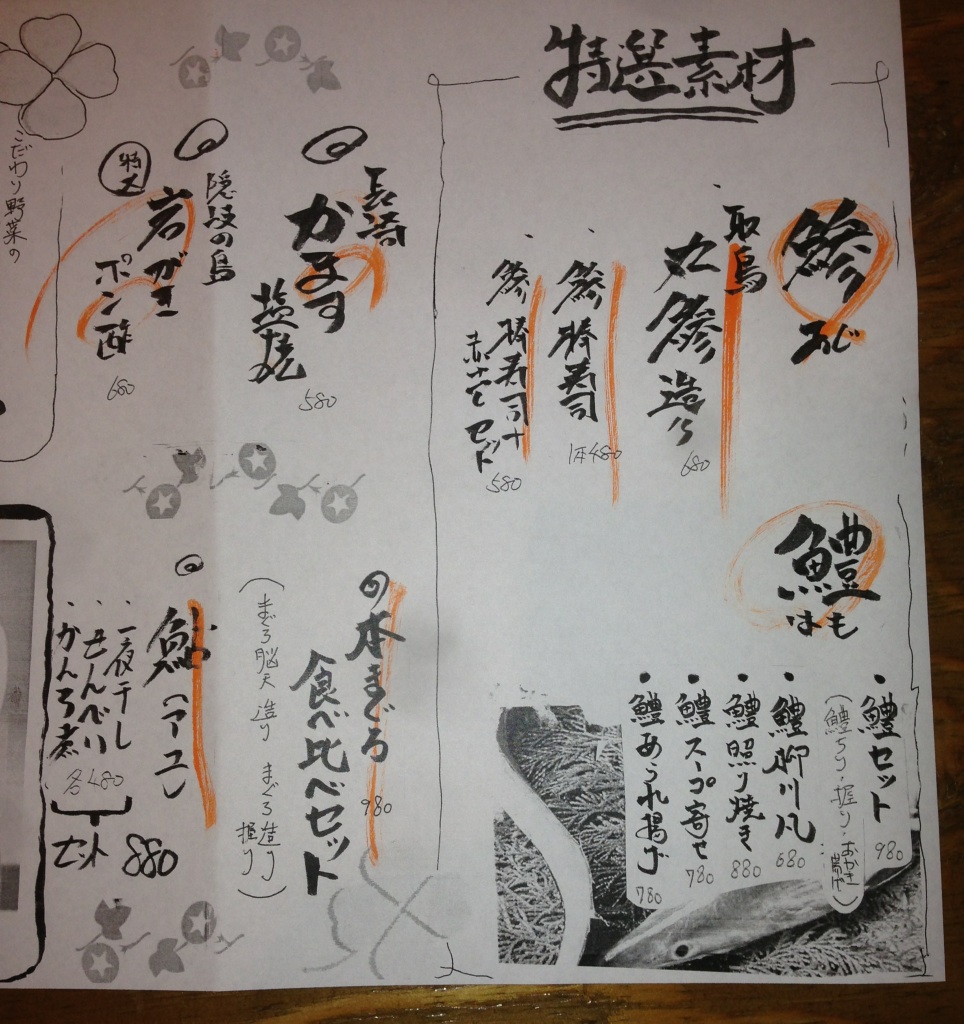 特選素材
鯵
あじ
取鳥
丸鯵造り
680
鯵棒寿司
1本480
鯵棒寿司+
赤だしセット
580
鱧
はも
・鱧セット
980
(鱧ちり・握り・おかき揚げ)
・鱧柳川風
680
・鱧照り焼き
880
・鱧スープ寄せ
780
・鱧あられ揚げ
780
長崎
かます
塩焼
580
隠岐の島
特大
岩がき
ポン酢
680
本まぐろ
食べ比べセット
980
(まぐろ脳天造り まぐろ造り 握り)
鮎(アユ)
・一夜干し
・せんべい
・かんろ煮
各480
セット 880
こだわり野菜の